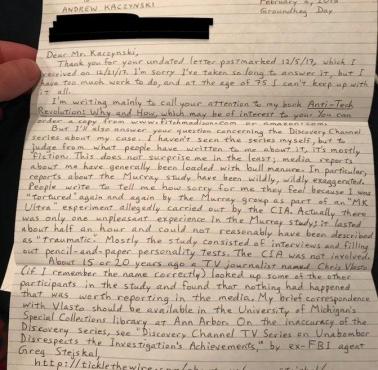 ANDREW KACZYNSKI
February
Groundhog Day
Dear Mr. Kaczynski,
Thank you for your undated letter postmarked 12/5/17, which I
received on 12/21/17. I'm sorry I've taken so long to answer it, but I
have too much work to do, and at the age of 75 I can't keep up with
it all.
I'm writing mainly to call your attention to my book Anti-Tech
Revolution: Why and How, which may be of interest to you. You can
order a copy from www.fitchmadison.com or amazon.com.
But I'll also answer your question concerning the Discovery Channel
series about my case. I haven't seen the series myself, but to
judge from what people have written to me about it, it's mostly
fiction. This does not surprise me in the least; media reports
about me have generally been loaded with bull manure. In particular,
reports about the Murray study have been wildly, wildly exaggerated.
People write to tell me how sorry for me they feel because I was
"tortured" again and again by the Murray group as part of an "MK
Ultra" experiment allegedly carried out by the CIA. Actually there
was only one unpleasant experience in the Murray study; it lasted
about half an hour and could not reasonably have been described
as "traumatic." Mostly the study consisted of interviews and filling
out pencil-and-paper personality tests. The CIA was not involved.
About 15 or 20 years ago a TV journalist named Chris Vlasto
(if I remember the name correctly) looked up some of the other
participants in the study and found that nothing had happened
that was worth reporting in the media. My brief correspondence
with Vlasto should be available in the University of Michigan's
Special Collections library at Ann Arbor. On the inaccuracy of the
Discovery series, see "Discovery Channel TV Series on Unabomber
Disrespects the Investigation's Achievements," by ex-FBI agent
Greg Stejskal,